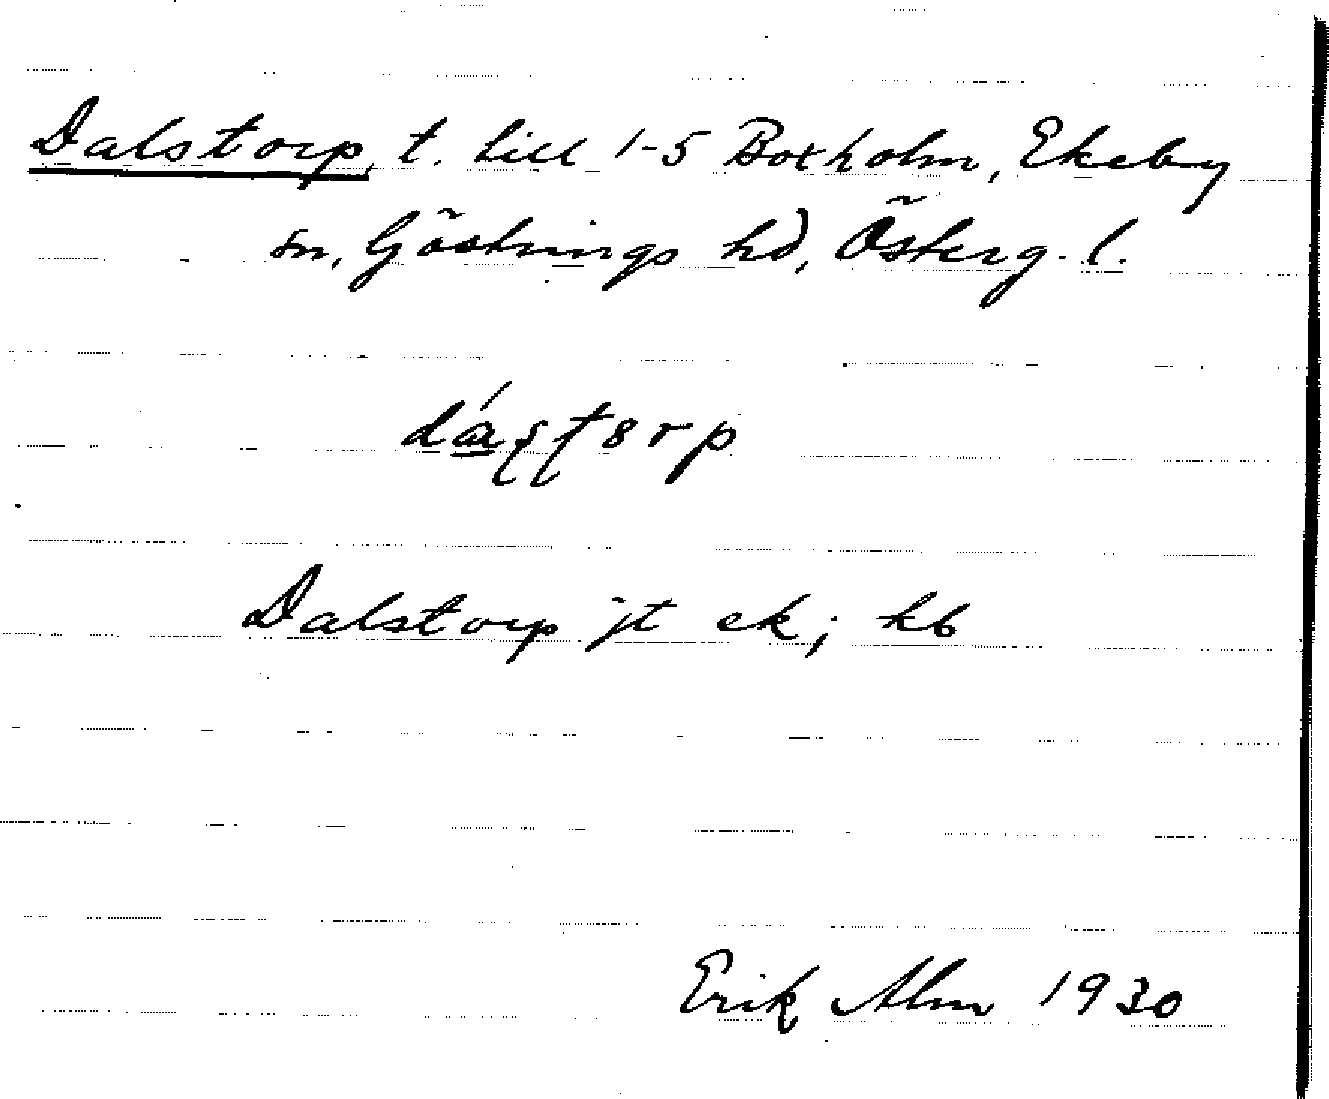 Dalstorp, t. till 1-5 Boxholm, Ekeby
sn, Göstrings hd, Österg. l.
Dalstorp jt ek; kb
Erik Alm 1930